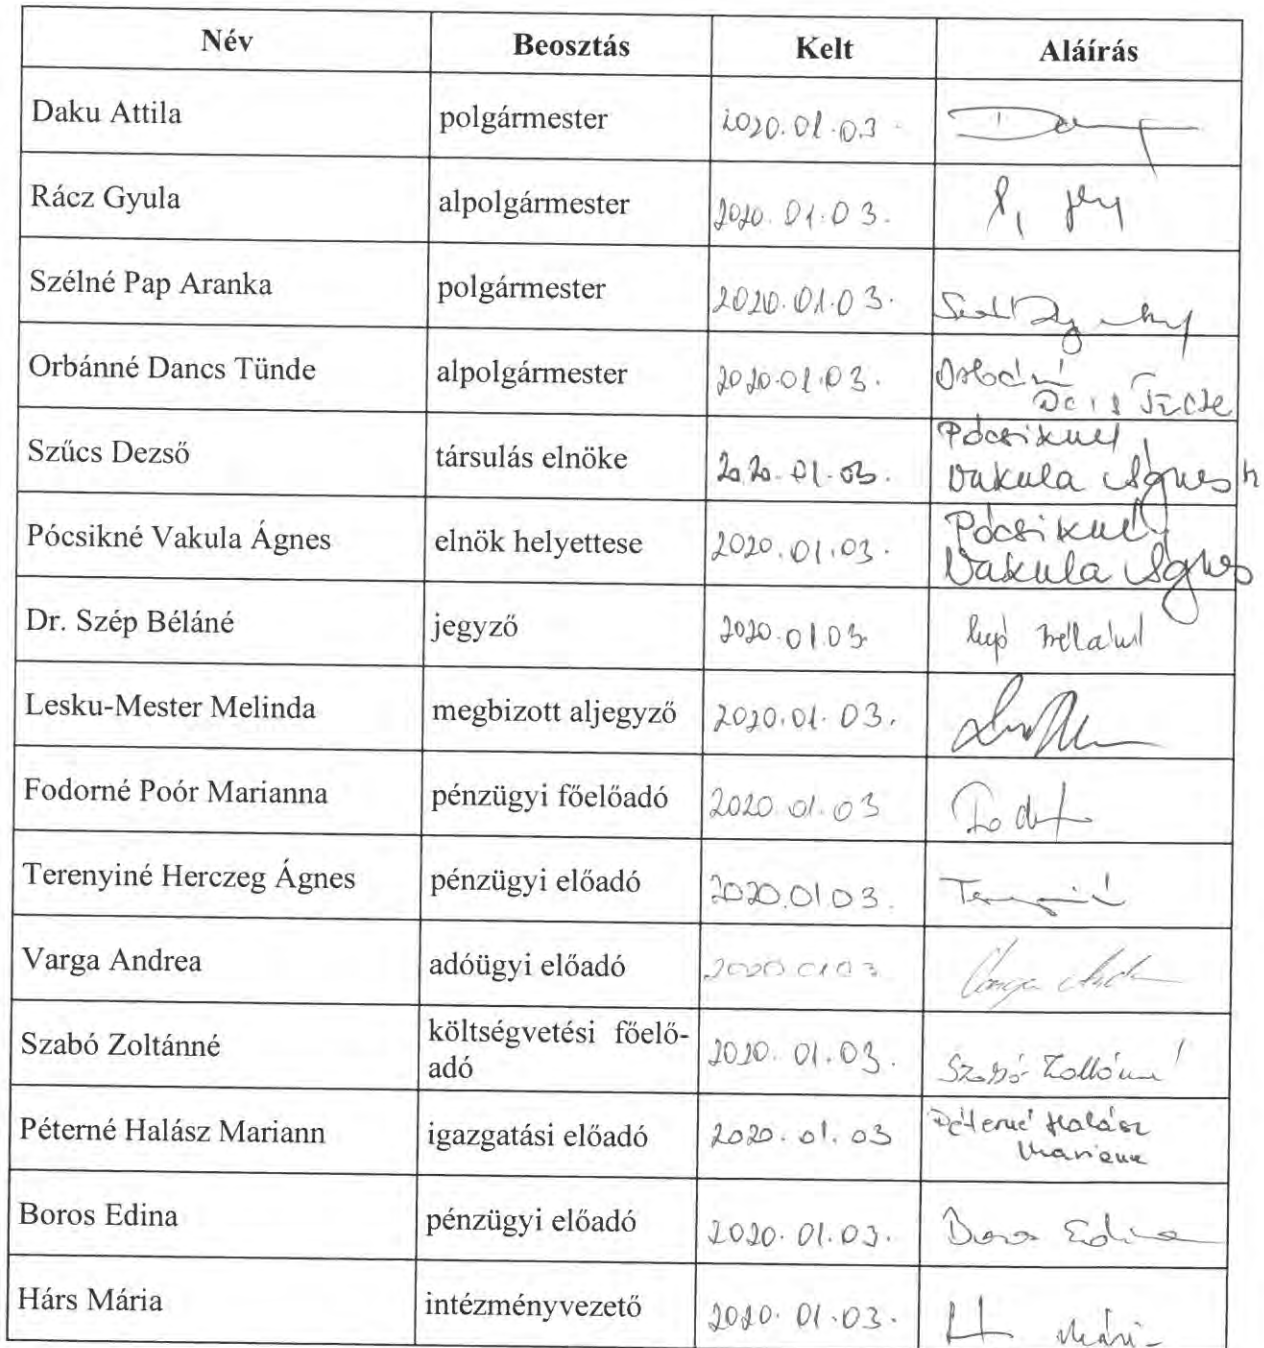 Név Beosztás Kelt Aláírás
Daku Attila polgármester 2020.01.03.
Rácz Gyula alpolgármester 2020.01.03.
Szélné Pap Aranka polgármester 2020.01.03.
Orbánné Dancs Tünde alpolgármester 2020.01.03.
Szűcs Dezső társulás elnöke 2020.01.03. Pócsikné
Vakula Ágnes h
Pócsikné Vakula Ágnes elnök helyettese 2020.01.03. Pócsikné
Vakula Ágnes
Dr. Szép Béláné jegyző 2020.01.03. Szép Béláné
Lesku-Mester Melinda megbizott aljegyző 2020.01.03.
Fodorné Poór Marianna pénzügyi főelőadó 2020.01.03
Terenyiné Herczeg Ágnes pénzügyi előadó 2020.01.03.
Varga Andrea adóügyi előadó 2020.01.03 Varga
Szabó Zoltánné költségvetési főelő-
adó 2020.01.03. Szabó Zoltánné
Péterné Halász Mariann igazgatási előadó 2020.01.03 Péterné Halász
Mariann
Boros Edina pénzügyi előadó 2020.01.03. Boros Edina
Hárs Mária intézményvezető 2020.01.03.